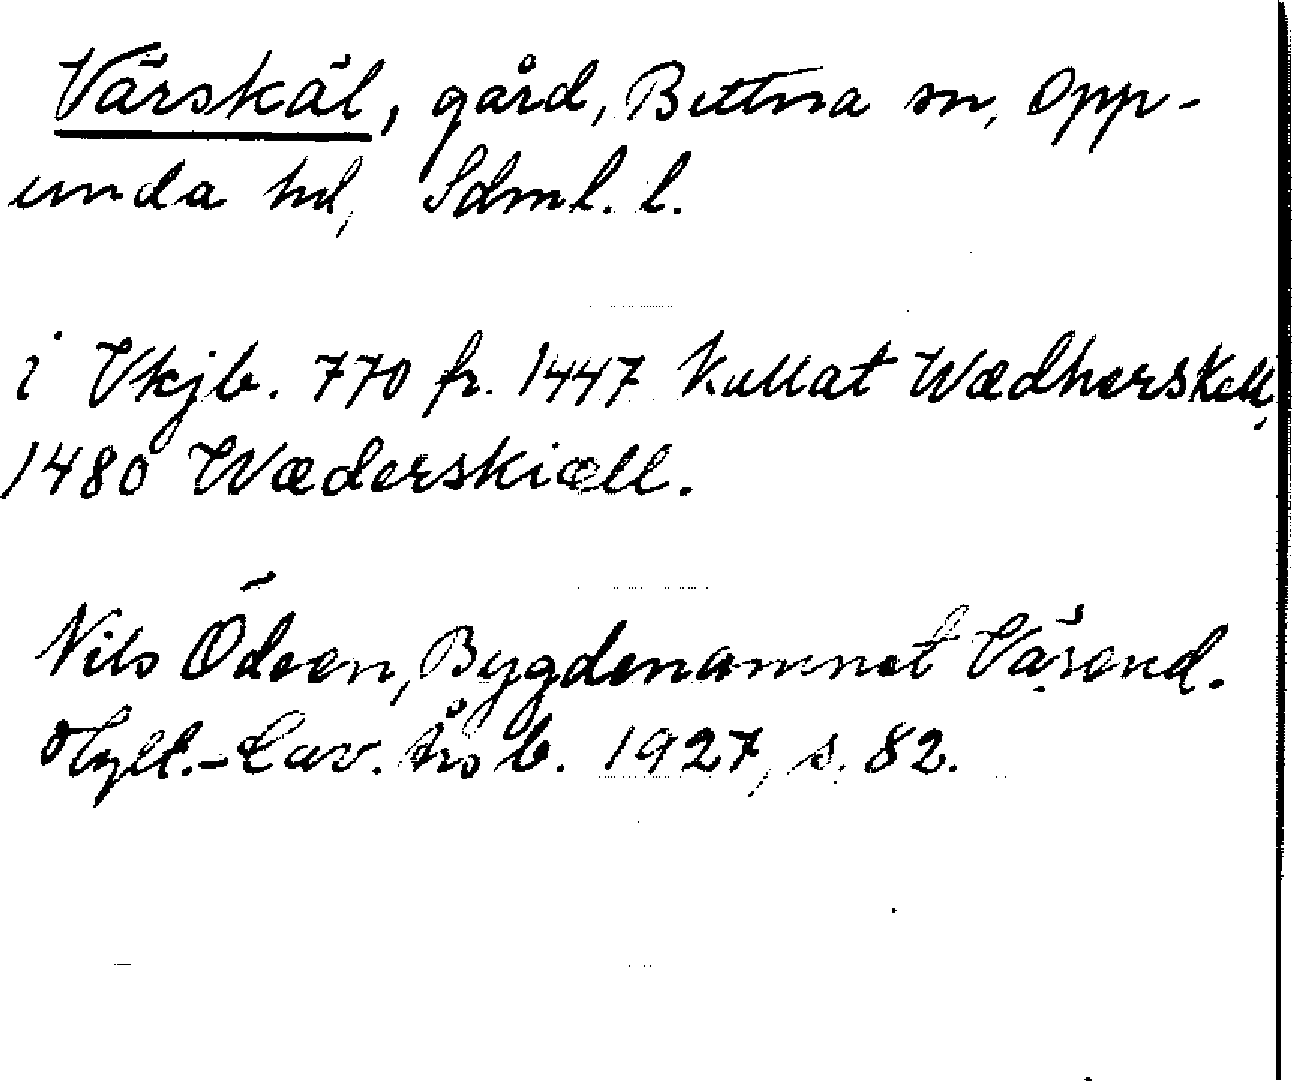 Värskäl, gård, Bettna sn, Opp-
unda hd, Sdml. l.
i Vkjb. 770 fr. 1447 kallat Wædherskell,
1480 Wæderskiæll.
Nils Ödeen, Bygdenamnet Värend.
Hylt.-Cav. årsb. 1927, s. 82.